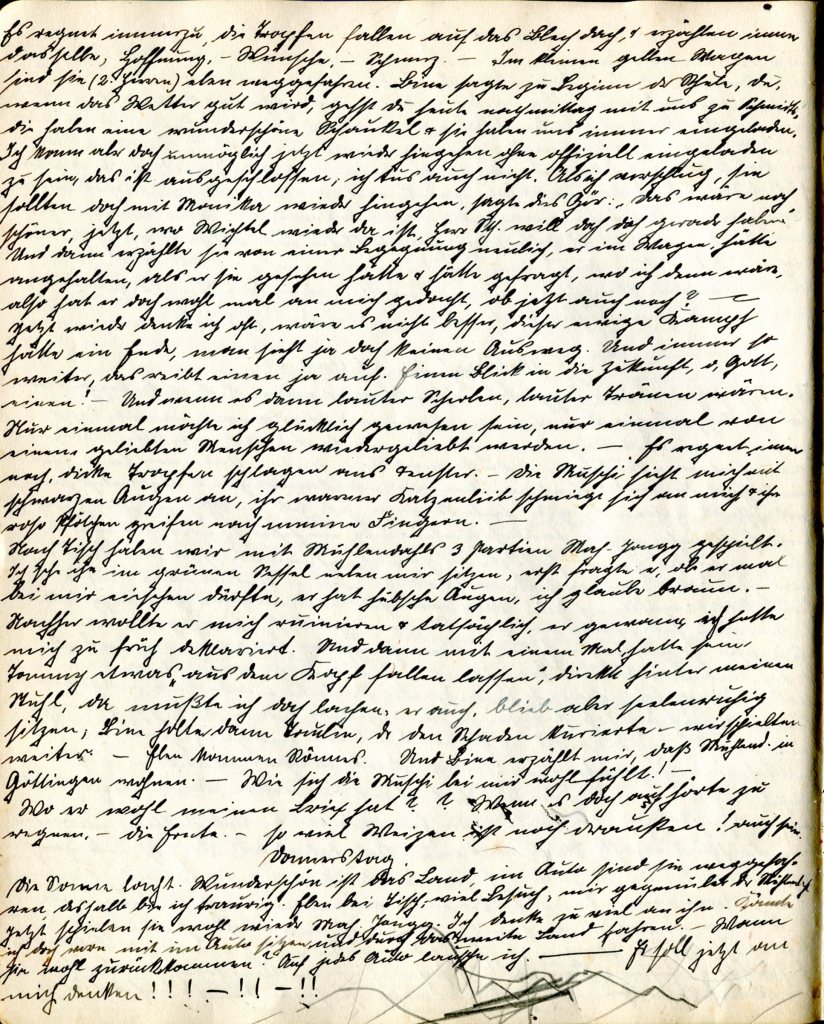 Es regnet immerzu, die Tropfen fallen auf das Blechdach, & erzählen immer
dasselbe, Hoffnung, – Wünsche, – Schmerz. – Im kleinen gelben Wagen
sind sie (2. Herren) eben weggefahren. Bine sagte zu Beginn der Schule, du,
wenn das Wetter gut wird, gehst du heute nachmittag mit uns zu Schmidts,
die haben eine wunderschöne Schaukel & sie haben uns immer eingeladen.
Ich kann aber doch unmöglich jetzt wieder hingehen ohne offiziell eingeladen
zu sein, das ist ausgeschlossen; ich tus auch nicht. Als ich vorschlug, sie
sollten doch mit Monika wieder hingehen, sagte dies Gör: „Das wäre noch
schöner, jetzt, wo Wichtel wieder da ist, Herr Sch. will dich doch gerade haben“
Und dann erzählte sie von einer Begegnung neulich, er im Wagen, hätte
angehalten, als er sie gesehen hätte & hätte gefragt, wo ich denn wäre,
also hat er doch wohl mal an mich gedacht, ob jetzt auch noch? —
Jetzt wieder denke ich oft, wäre es nicht besser, dieser ewige Kampf
hätte ein Ende, man sieht ja doch keinen Ausweg. Und immer so
weiter, das reibt einen ja auf. Einen Blick in die Zukunft, o, Gott,
einen! – Und wenn es dann lauter Scherben, lauter Tränen wären.
Nur einmal möchte ich glücklich gewesen sein, nur einmal von
einem geliebten Menschen wiedergeliebt werden. – Es regnet immer
noch, dicke Tropfen schlagen ans Fenster. – Die Muschi sieht mich mit
schwarzen Augen an, ihr warmer Katzenleib schmiegt sich an mich & ihre
rosa Pfötchen greifen nach meinen Fingern. —
Nach Tisch haben wir mit Mühlendahls 3 Partien Mah-Jongg gespielt.
Ich sehe ihn im grünen Sessel neben mir sitzen, erst fragte er, ob er mal
bei mir einsehen dürfte, er hat hübsche Augen, ich glaube braun. –
Nachher wollte er mich ruinieren & tatsächlich, er gewann, ich hatte
mich zu früh deklariert. Und dann mit einem Mal, hatte sein
Tommy etwas „aus dem Kopf fallen lassen“, direkt hinter meinen
Stuhl, da mußte ich doch lachen, er auch, blieb aber seelenruhig
sitzen; Bine holte dann Paulin, der den Schaden kurierte – wir spielten
weiter. – Eben kommen Rönnes. Und Bine erzählt mir, daß Mühlend. in
Göttingen wohnen. – Wie sich die Muschi bei mir wohl fühlt! –
Wo er wohl meinen Brief hat? ? Wenn es doch aufhörte zu
regnen, – die Ernte. – so viel Weizen ist noch draußen! auch sein.
Donnerstag.
Die Sonne lacht. Wunderschön ist das Land, im Auto sind sie weggefah-
ren, deshalb bin ich traurig. Eben bei Tisch: viel Besuch, mir gegenüber der
Jetzt spielen sie wohl wieder Mah Jongg. Ich denke zu viel an ihn. Könnte
ich doch vorn mit im Auto sitzen und durch das weite Land fahren. – Wann
sie wohl zurückkommen? Auf jedes Auto lausche ich. —— Er soll jetzt an
mich denken!!!! – !! – !!